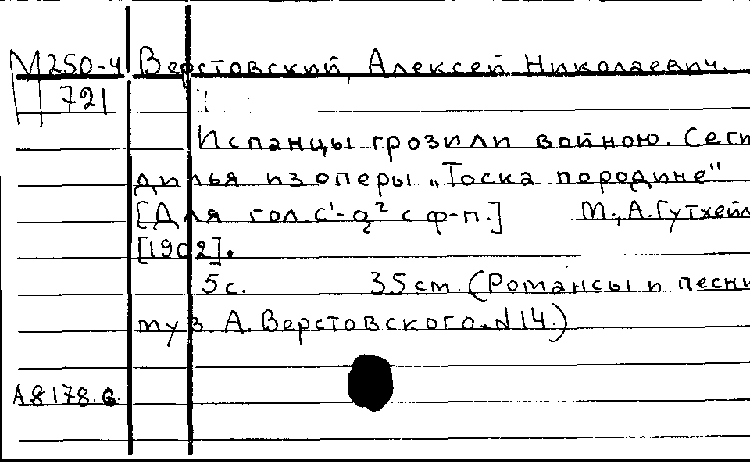 М250-4 Верстовский, Алексей Николаевич.
721
Испанцы грозили войною. Сеги
дилья из оперы „Тоска породине"
[Для гол. c¹-a² с ф-п.] М., А. Гутхейл
[1902].
5 с. 35 см. (Романсы и песни
муз. А. Верстовского. N 14.)
А8178.G.